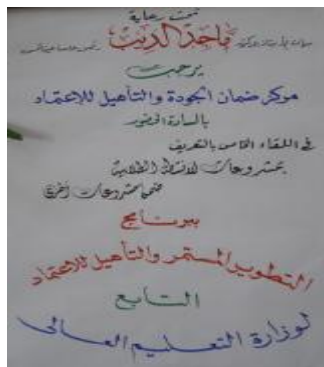 تحت رعاية
ماجد الديب
يرحب
مركز ضمان الجودة والتأهيل للاعتماد
بالسادة الحضور
فى اللقاء الخاص بالتعريف
بمشروعات لأنشطة الطلابية
ضمن مشروعات أخرى
ببرنامج
التطوير المستمر والتأهيل للاعتماد
التابع
لوزارة التعليم العالى